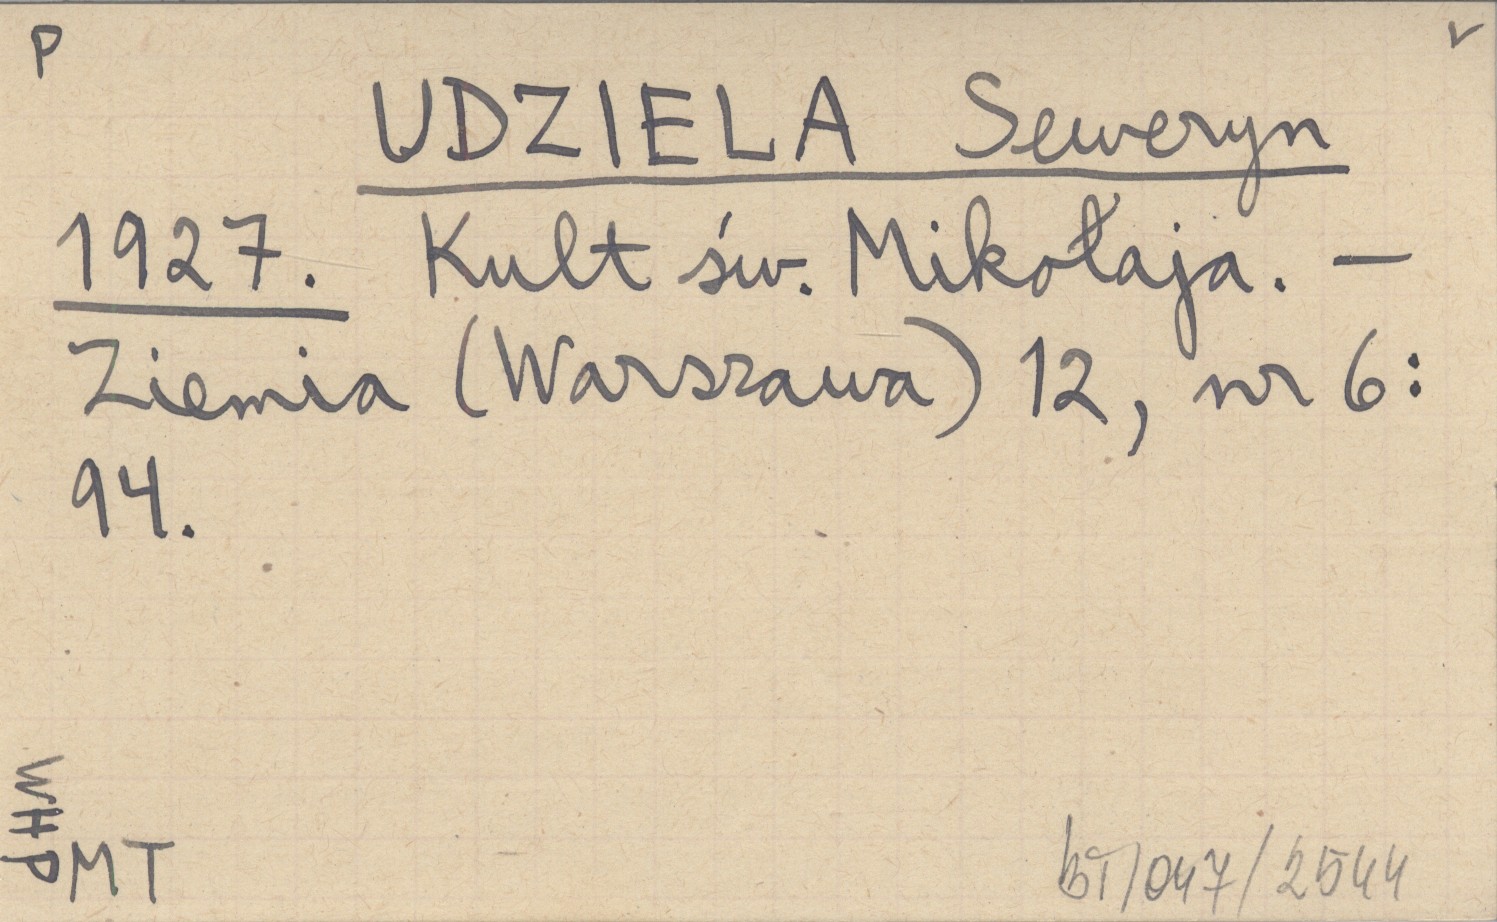 P
v
UDZIELA Seweryn
1927. Kult św. Mikołaja. —
Ziemia (Warszawa) 12, nr 6:
94.
WHP
MT
BT/047/2544